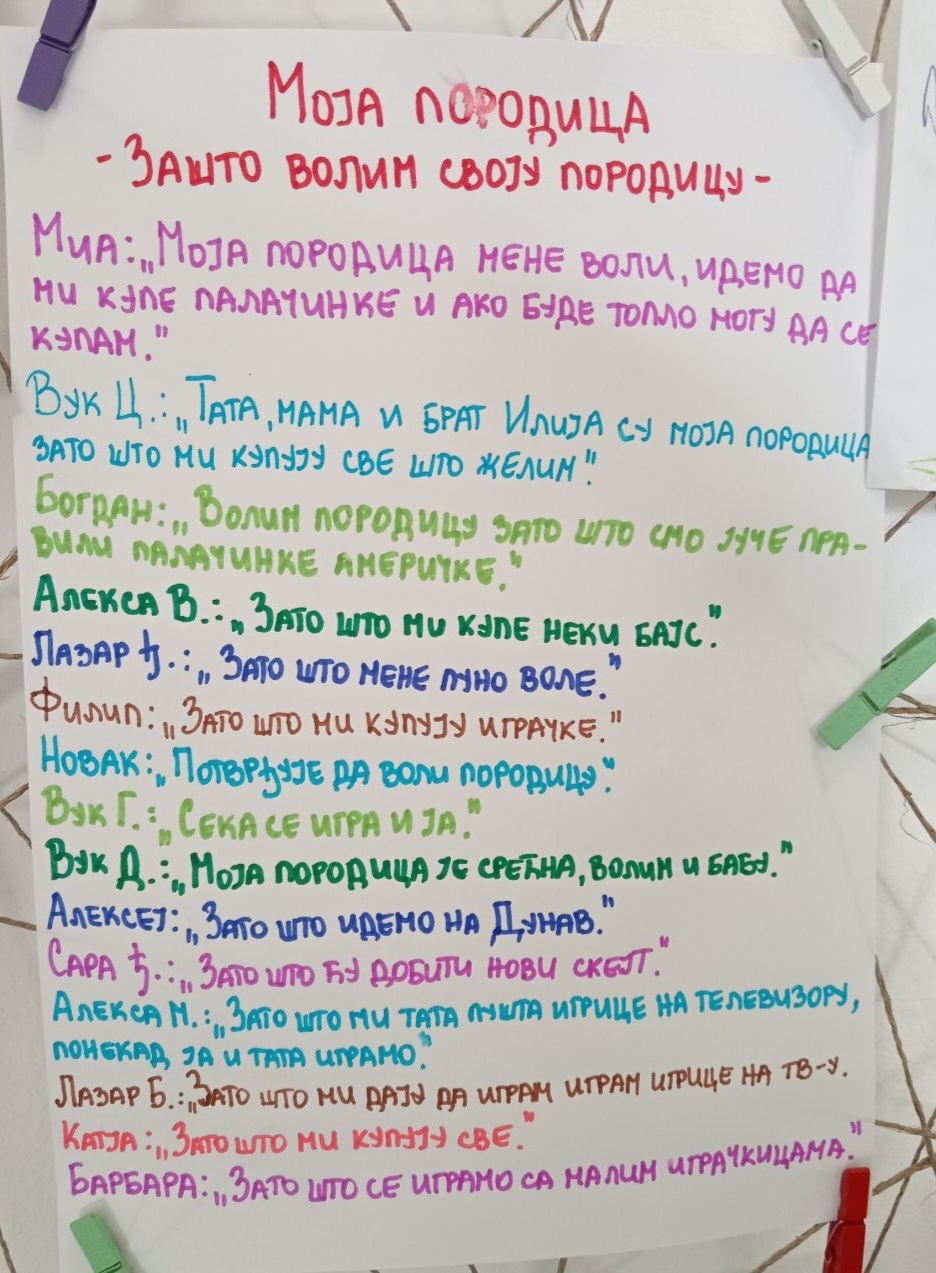 Моја породица
- Зашто волим своју породицу -
Миа: „Моја породица мене воли, идемо да
ми купе палачинке и ако буде топло могу да се
купам."
Вук Ц.: „Тата, мама и брат Илија су моја породица
зато што ми купују све што желим".
Богдан: „Волим породицу зато што смо јуче пра-
вили палачинке америчке."
Алекса В.: „Зато што ми купе неки бајс".
Лазар Ђ.: „Зато што мене пуно воле."
Филип: „Зато што ми купују играчке."
Новак: „Потврђује да воли породицу".
Вук Г.: „Сека се игра и ја."
Вук Д.: „Моја породица је срећна, волим и бабу."
Алексеј: „Зато што идемо на Дунав."
Сара Ђ.: „Зато што ћу добити нови скејт."
Алекса М.: „Зато што ми тата пушта игрице на телевизору,
понекад ја и тата играмо."
Лазар Б.: „Зато што ми дају да играм играм игрице на ТВ-у.
Катја: „Зато што ми купују све."
Барбара: „Зато што се играмо са малим играчкицама."